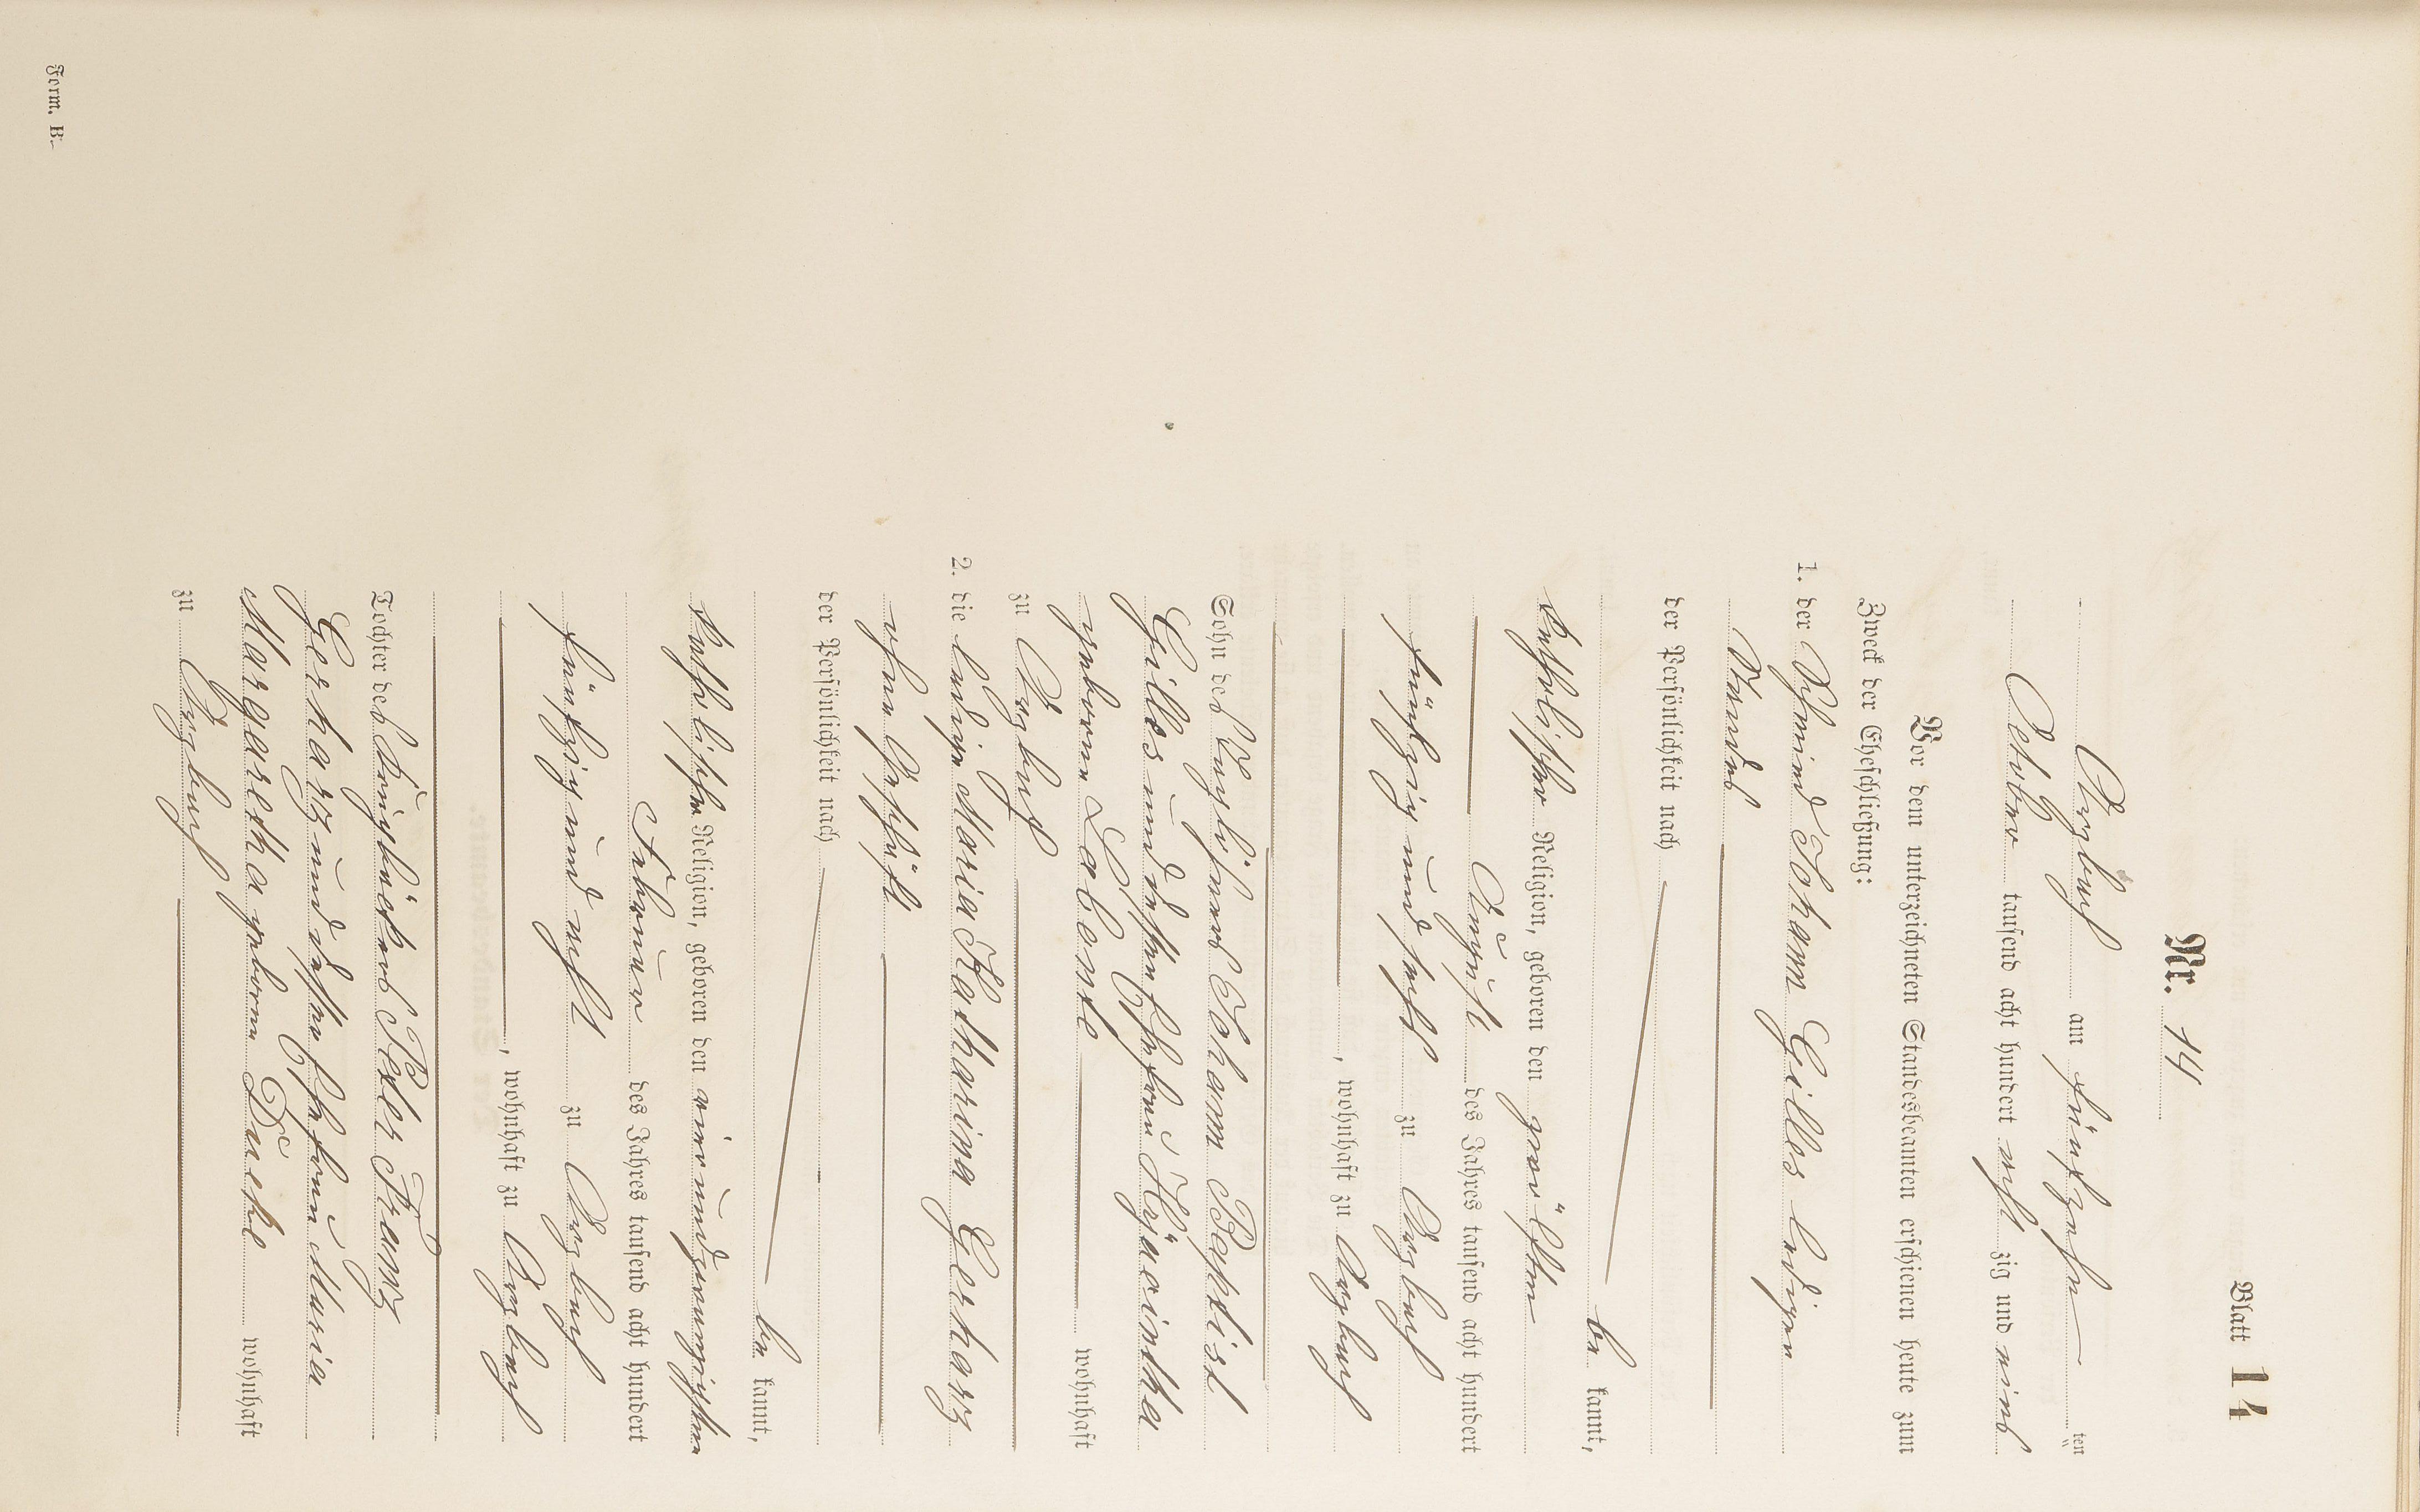 Blatt 14
Nr. 14
Arzbach am fünfzehn ten
October tausend acht hundert acht zig und eins
Vor dem unterzeichneten Standesbeamten erschienen heute zum
Zweck der Eheschließung:
1. der Schmied Johann Gilles ledigen
Standes
der Persönlichkeit nach
be kannt,
katholischer Religion, geboren den zwölften
August des Jahres tausend acht hundert
fünfzig und sechs zu Arzbach
, wohnhaft zu Arzbach
Sohn des Johann Baptist
Gilles und dessen Ehefrau Hyacintha
geborene Labonte wohnhaft
zu Arzbach
2. die ledige Maria Katharina Gerharz
ohne Geschäft
der Persönlichkeit nach
be kannt,
katholischer Religion, geboren den vierundzwanzigsten
Februar des Jahres tausend acht hundert
fünfzig und acht zu Arzbach
, wohnhaft zu Arzbach
Tochter des Peter Franz
Gerharz und dessen Ehefrau Maria
Margaretha geborene wohnhaft
zu Arzbach
Form. B.